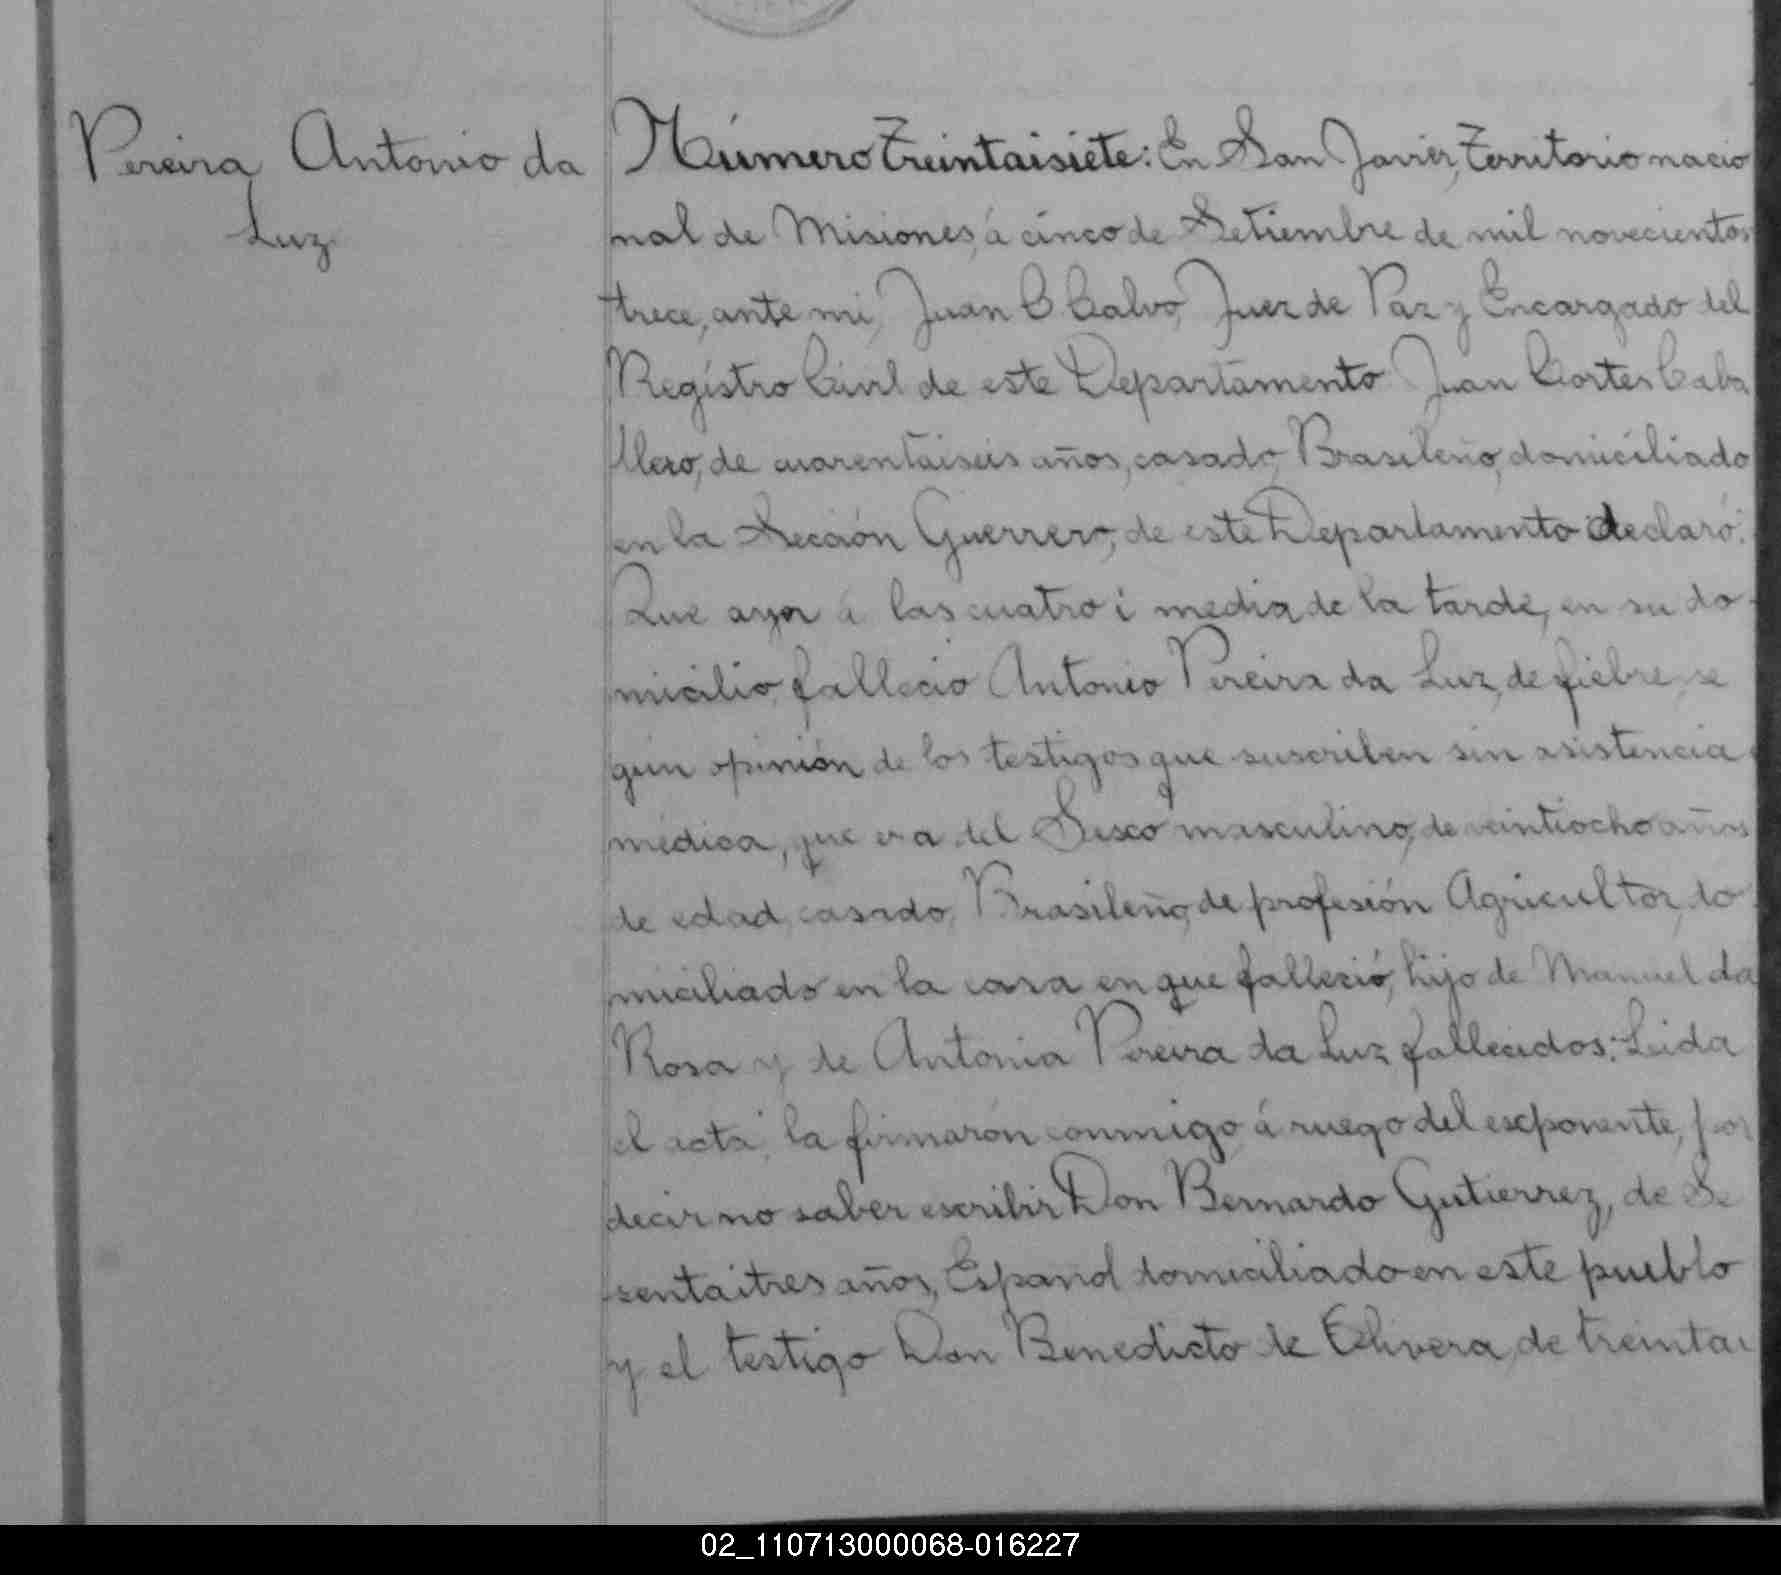 Pereira Antonio da
Luz
Número Treintaisiete: En San Javier, Territorio nacio
nal de Misiones, á cinco de Setiembre de mil novecientos
trece, ante mi, Juan C Calvo, Juez de Paz y Encargado del
Registro Civil de este Departamento Juan Cortes Caba
llero, de cuarentaiseis años, casado, Brasileño, domiciliado
en la Sección Guerrero, de este Departamento declaró:
Que ayer á las cuatro i media, de la tarde, en su do-
micilio, falleció Antonio Pereira da Luz, de fiebre, se
gún opinión de los testigos que suscriben sin asistencia
médica, que era del Sexo masculino, de veintiocho años
de edad, casado, Brasileño, de profesión Agricultor, do-
miciliado en la casa en que falleció, hijo de Manuel da
Rosa y de Antonia Pereira da Luz fallecidos: Leida
el acta, la firmarón conmigo, á ruego del exponente, por
decir no saber escribir Don Bernardo Gutierrez, de Se
sentaitres años, Español domiciliado en este pueblo
y el testigo Don Benedicto de Olivera, de treintai
02_110713000068-016227